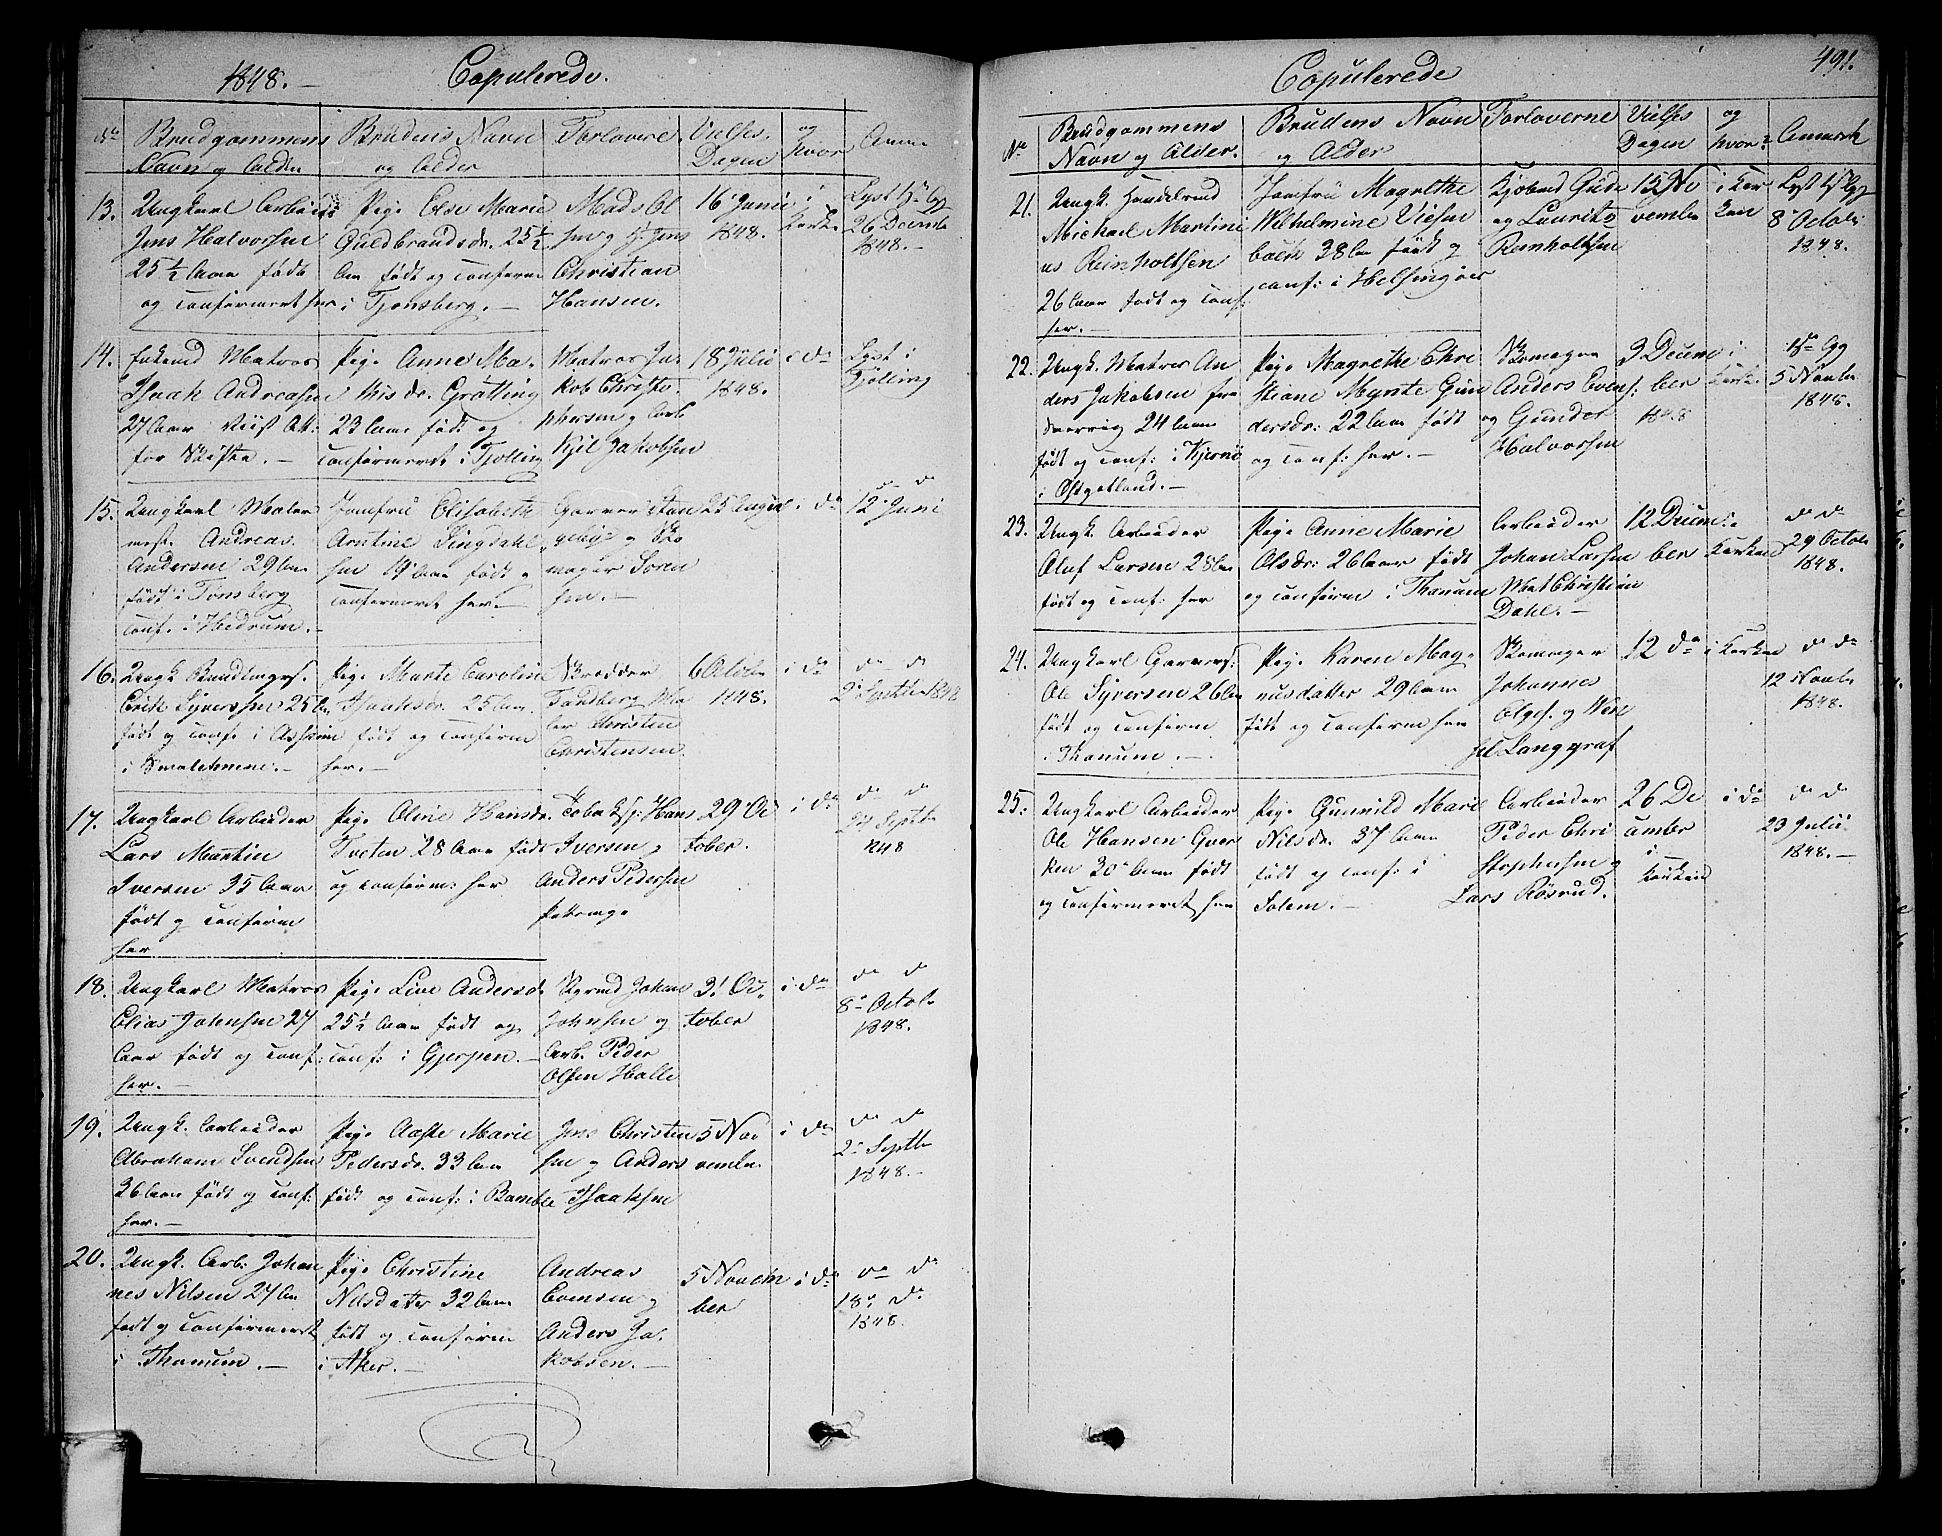 1848. Copulerede.
No Brudgommens Navn og Alder
Brudens Navn og Alder
Forlovere
Vielses Dagen
og hvor
Anm
13. Ungkarl Arbeider
Jens Halvorsen
25 1/2 Aar født
og confirmeret her
Pige Else Marie
Guldbrandsdr. 25 1/2
Aar født og confirm
i Tjønsberg.
Mads Ol
sen og Jens
Christian
Hansen.
16 Junii
1848.
i
Kirke
Lyst 1ste Gg
26 Decemb
1848.
14. Enkemd Matros
Isaak Andreasen
27 Aar Viist Att:
for Skifte.
Pige Anne Ma
Nisdr. Grøtting
23 Aar født og
confirmeret i Tjølling
Matros Ja
kob Christo
phersen og Arb
Kjel Jakobsen
18 Julii
1848.
i do
Lyst i
Tjølling
15. Ungkarl Maler
mest. Andreas
Andersen 29 Aar
født i Tønsberg
conf. i Hedrum.
Jomfru Elisabeth
Arntine Lingdahl
sen 19 Aar født og
confirmerede her.
Garver
og Sko
mager Søren
sen.
25 August
i do
do do
12 Juni
16. Ungk Bundtmagers.
Erik Syversen 25 Aar
født og conf. i Askim
i Smalehnene.
Pige Marte Caroline
Isaaksdr. 25 Aar
født og confirm
her.
Skrædder
Sandberg Ma
ler Christen
Christensen
6 October
1848.
i do
do do
2 Septbr 1848
17. Ungkarl Arbeider
Lars Martin
Iversen 35 Aar
født og confirm
her
Pige Oline Hansdr.
Tveten 28 Aar født
og confirm: her
Hans
Iversen og
Anders Pedersen
29 Oc
tober.
i do
do do
24 Septbr
1848
18. Ungkarl Matros
Elias Johnsen 27
Aar født og conf:
her.
Pige Live Andersdr.
25 1/2 Aar født og
conf: i Gjerpen.
Johan
Johnsen og
Arb. Peder
Olsen Halle
31 Oc
tober
i do
do do
8 Octobr
1848.
19. Ungk. Arbeider
Abraham Svendsen
36 Aar født og conf:
her.
Pige Aaste Marie
Pedersdr. 33 Aar
født og conf: i Bamble
Jens Christen
sen og Anders
Isaaksen
5 No
vembr.
i do
do do
2 Septbr
1848.
20. Ungk. Arb: Johan
nes Nilsen 27 Aar
født og confirmeret
i Thanum.
Pige Christine
Nilsdater 32 Aar
født og confirm
i Aker.
Andreas
Evensen og
Anders Ja
kobsen.
5 Novem
ber
i do
do do
18 do
1848.
Copulerede 491.
No Brudgommens Navn og Alder.
Brudens Navn og Alder
Forloverne
Vielses Dagen
og hvor?
Anmærk
21. Ungk. Handelsmd
Michael Martini
us Reinholtsen
26 Aar født og conf:
her.
Jomfru Magrethe
Wilhelmine Viesen
bæck 38 Aar født og
conf: i Helsingøer
Kjøbmd Gude
og Lauritz
Reinholtsen
15 No
vember
i Kir
ken
Lyst 1ste Gg
8 Octobr
1848.
22. Ungk. Matros An
ders Jakobsen fra
24 Aar
født og conf: i
i Østgotland.
Pige Magrethe Chri
stiane Myrete Gun
dersdr. 22 Aar født
og conf: her.
Skomager
Anders Evens.
og Gunder
Halvorsen
3 Decem
ber
1848
i
Kirke
1ste Gg
5 Novbr
1848.
23. Ungk. Arbeider
Oluf Larsen 28 Aar
født og conf: her
Pige Anne Marie
Olsdr: 26 Aar født
og confirm i Thanum
Arbeider
Johan Larsen
Christian
Dahl.
12 Decem
ber
i
Kirken
do do
29 Octobr
1848.
24. Ungkarl Garvers:
Ole Syversen 26 Aar
født og confirm
i Thanum.
Pige Karen Mag
nusdatter 29 Aar
født og confirm her
Skomager
Johannes
Elges. og
Langgraf
12 do
i Kirken
do do
12 Novbr
1848.
25. Ungkarl Arbeider
Ole Hansen Qver
ken 30 Aar født
og confirmeret her
Pige Gunild Marie
Nilsdr. 37 Aar
født og conf: i
Solem.
Arbeider
Peder Chri
stophersen og
Lars Røsrud.
26 De
cember
i
Kirken
i do
do do
23 Julii
1848.